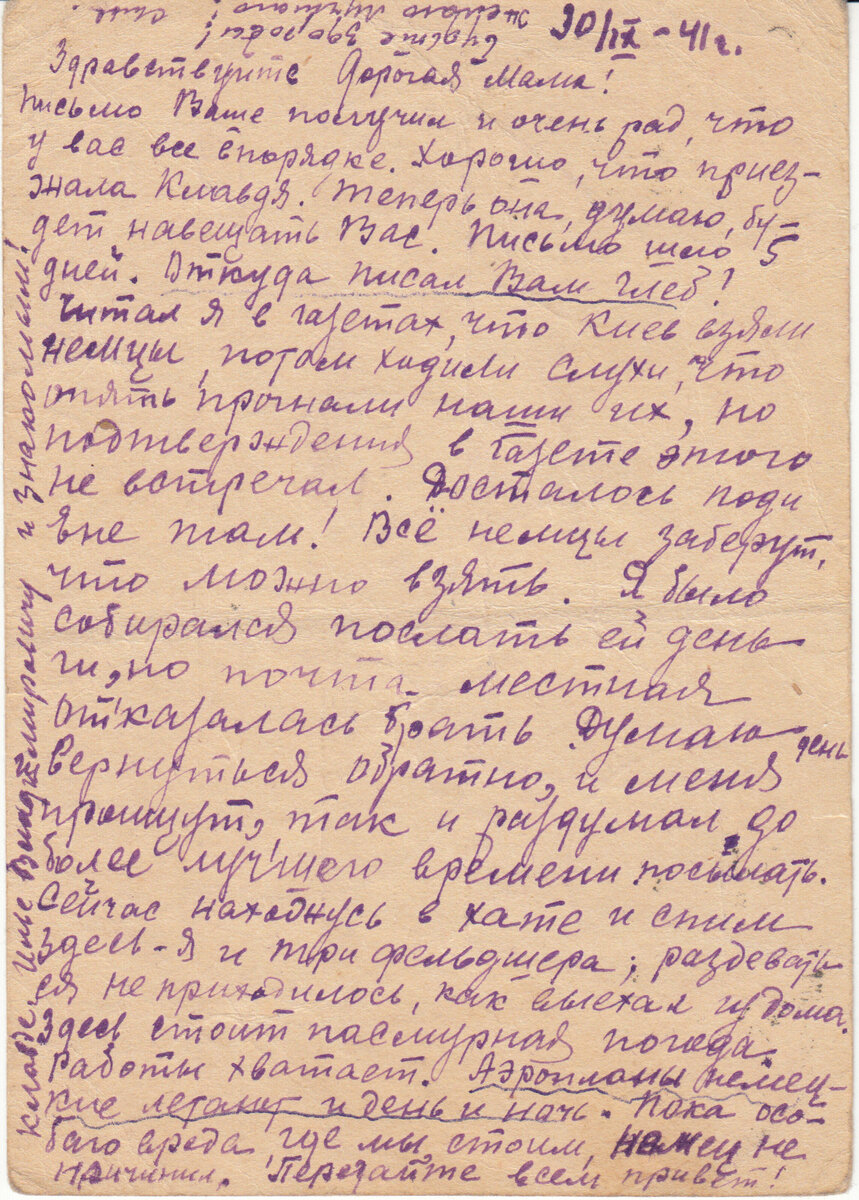 30/IX - 41 г.
Здравствуйте Дорогая Мама!
Письмо Ваше получил и очень рад, что
у вас все впорядке. Хорошо, что приез-
жала Клавдя. Теперь она, думаю, бу-
дет навещать Вас. Письмо шло 5
дней. Откуда писал Вам Глеб!
Читал я в газетах, что Киев взяли
немцы, потом ходили слухи, что
опять прогнали наши их, но
подтверждения в газете этого
не встречал. Досталось поди
Яне там! Всё немцы заберут,
что можно взять. Я было
собирался послать ей день
ги, но почта местная
отказалась брать. Думаю день
вернуться обратно, и меня
пропишут, так и раздумал до
более лучшего времени посылать.
Сейчас нахожусь в хате и спим
здесь - я и три фельдшера; раздевать-
ся не приходилось, как выехал из дома.
Здесь стоит пасмурная погода
Работы хватает. Аэропланы немец-
кие летают и день и ночь. Пока осо-
баго вреда, где мы стоим, немец не
причинил. Передайте всем привет!
Клавде, Илье Владимировичу и знакомым!
желаю лучшого!
счастье здоровья!